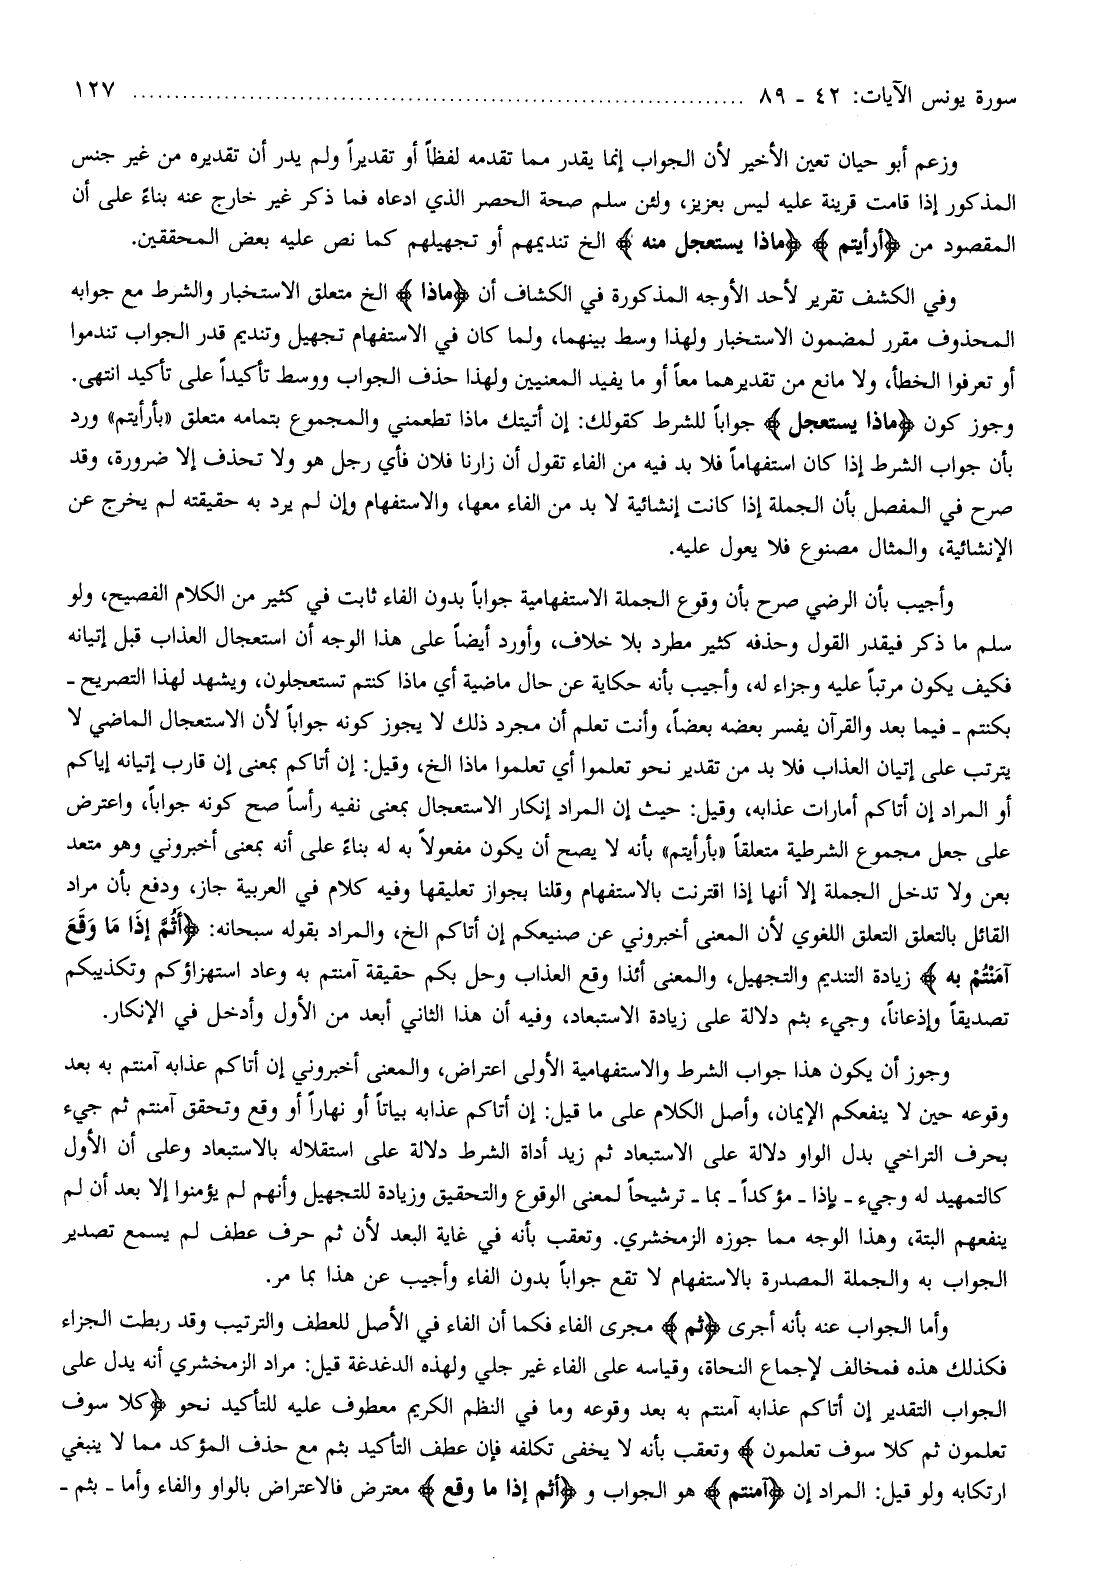 سورة يونس الآيات: ٤٢ ـ ٨٩ ........................................................................ ١٢٧
وزعم أبو حيان تعين الأخير لأن الجواب إنما يقدر مما تقدمه لفظاً أو تقديراً ولم يدر أن تقديره من غير جنس
المذكور إذا قامت قرينة عليه ليس بعزيز، ولئن سلم صحة الحصر الذي ادعاه فما ذكر غير خارج عنه بناءً على أن
المقصود من ﴿أرأيتم﴾ ﴿ماذا يستعجل منه﴾ الخ تنديمهم أو تجهيلهم كما نص عليه بعض المحققين.
وفي الكشف تقرير لأحد الأوجه المذكورة في الكشاف أن ﴿ماذا﴾ الخ متعلق الاستخبار والشرط مع جوابه
المحذوف مقرر لمضمون الاستخبار ولهذا وسط بينهما، ولما كان في الاستفهام تجهيل وتنديم قدر الجواب تندموا
أو تعرفوا الخطأ، ولا مانع من تقديرهما معاً أو ما يفيد المعنيين ولهذا حذف الجواب ووسط تأكيداً على تأكيد انتهى.
وجوز كون ﴿ماذا يستعجل﴾ جواباً للشرط كقولك: إن أتيتك ماذا تطعمني والمجموع بتمامه متعلق «بأرأيتم» ورد
بأن جواب الشرط إذا كان استفهاماً فلا بد فيه من الفاء تقول أن زارنا فلان فأي رجل هو ولا تحذف إلا ضرورة، وقد
صرح في المفصل بأن الجملة إذا كانت إنشائية لا بد من الفاء معها، والاستفهام وإن لم يرد به حقيقته لم يخرج عن
الإنشائية، والمثال مصنوع فلا يعول عليه.
وأجيب بأن الرضي صرح بأن وقوع الجملة الاستفهامية جواباً بدون الفاء ثابت في كثير من الكلام الفصيح، ولو
سلم ما ذكر فيقدر القول وحذفه كثير مطرد بلا خلاف، وأورد أيضاً على هذا الوجه أن استعجال العذاب قبل إتيانه
فكيف يكون مرتباً عليه وجزاء له، وأجيب بأنه حكاية عن حال ماضية أي ماذا كنتم تستعجلون، ويشهد لهذا التصريح ـ
بكنتم ـ فيما بعد والقرآن يفسر بعضه بعضاً، وأنت تعلم أن مجرد ذلك لا يجوز كونه جواباً لأن الاستعجال الماضي لا
يترتب على إتيان العذاب فلا بد من تقدير نحو تعلموا أي تعلموا ماذا الخ، وقيل: إن أتاكم بمعنى إن قارب إتيانه إياكم
أو المراد إن أتاكم أمارات عذابه، وقيل: حيث إن المراد إنكار الاستعجال بمعنى نفيه رأساً صح كونه جواباً، واعترض
على جعل مجموع الشرطية متعلقاً «بأرأيتم» بأنه لا يصح أن يكون مفعولاً به له بناءً على أنه بمعنى أخبروني وهو متعد
بعن ولا تدخل الجملة إلا أنها إذا اقترنت بالاستفهام وقلنا بجواز تعليقها وفيه كلام في العربية جاز، ودفع بأن مراد
القائل بالتعلق التعلق اللغوي لأن المعنى أخبروني عن صنيعكم إن أتاكم الخ، والمراد بقوله سبحانه: ﴿أَثُمَّ إِذَا مَا وَقَعَ
آمَنْتُمْ به﴾ زيادة التنديم والتجهيل، والمعنى أئذا وقع العذاب وحل بكم حقيقة آمنتم به وعاد استهزاؤكم وتكذيبكم
تصديقاً وإذعاناً، وجيء بثم دلالة على زيادة الاستبعاد، وفيه أن هذا الثاني أبعد من الأول وأدخل في الإنكار.
وجوز أن يكون هذا جواب الشرط والاستفهامية الأولى اعتراض، والمعنى أخبروني إن أتاكم عذابه آمنتم به بعد
وقوعه حين لا ينفعكم الإيمان، وأصل الكلام على ما قيل: إن أتاكم عذابه بياتاً أو نهاراً أو وقع وتحقق آمنتم ثم جيء
بحرف التراخي بدل الواو دلالة على الاستبعاد ثم زيد أداة الشرط دلالة على استقلاله بالاستبعاد وعلى أن الأول
كالتمهيد له وجيء ـ بإذا ـ مؤكداً ـ بما ـ ترشيحاً لمعنى الوقوع والتحقيق وزيادة للتجهيل وأنهم لم يؤمنوا إلا بعد أن لم
ينفعهم البتة، وهذا الوجه مما جوزه الزمخشري. وتعقب بأنه في غاية البعد لأن ثم حرف عطف لم يسمع تصدير
الجواب به والجملة المصدرة بالاستفهام لا تقع جواباً بدون الفاء وأجيب عن هذا بما مر.
وأما الجواب عنه بأنه أجرى ﴿ثم﴾ مجرى الفاء فكما أن الفاء في الأصل للعطف والترتيب وقد ربطت الجزاء
فكذلك هذه فمخالف لإجماع النحاة، وقياسه على الفاء غير جلي ولهذه الدغدغة قيل: مراد الزمخشري أنه يدل على
الجواب التقدير إن أتاكم عذابه آمنتم به بعد وقوعه وما في النظم الكريم معطوف عليه للتأكيد نحو ﴿كلا سوف
تعلمون ثم كلا سوف تعلمون﴾ وتعقب بأنه لا يخفى تكلفه فإن عطف التأكيد بثم مع حذف المؤكد مما لا ينبغي
ارتكابه ولو قيل: المراد إن ﴿آمنتم﴾ هو الجواب و ﴿أثم إذا ما وقع﴾ معترض فالاعتراض بالواو والفاء وأما ـ بثم ـ